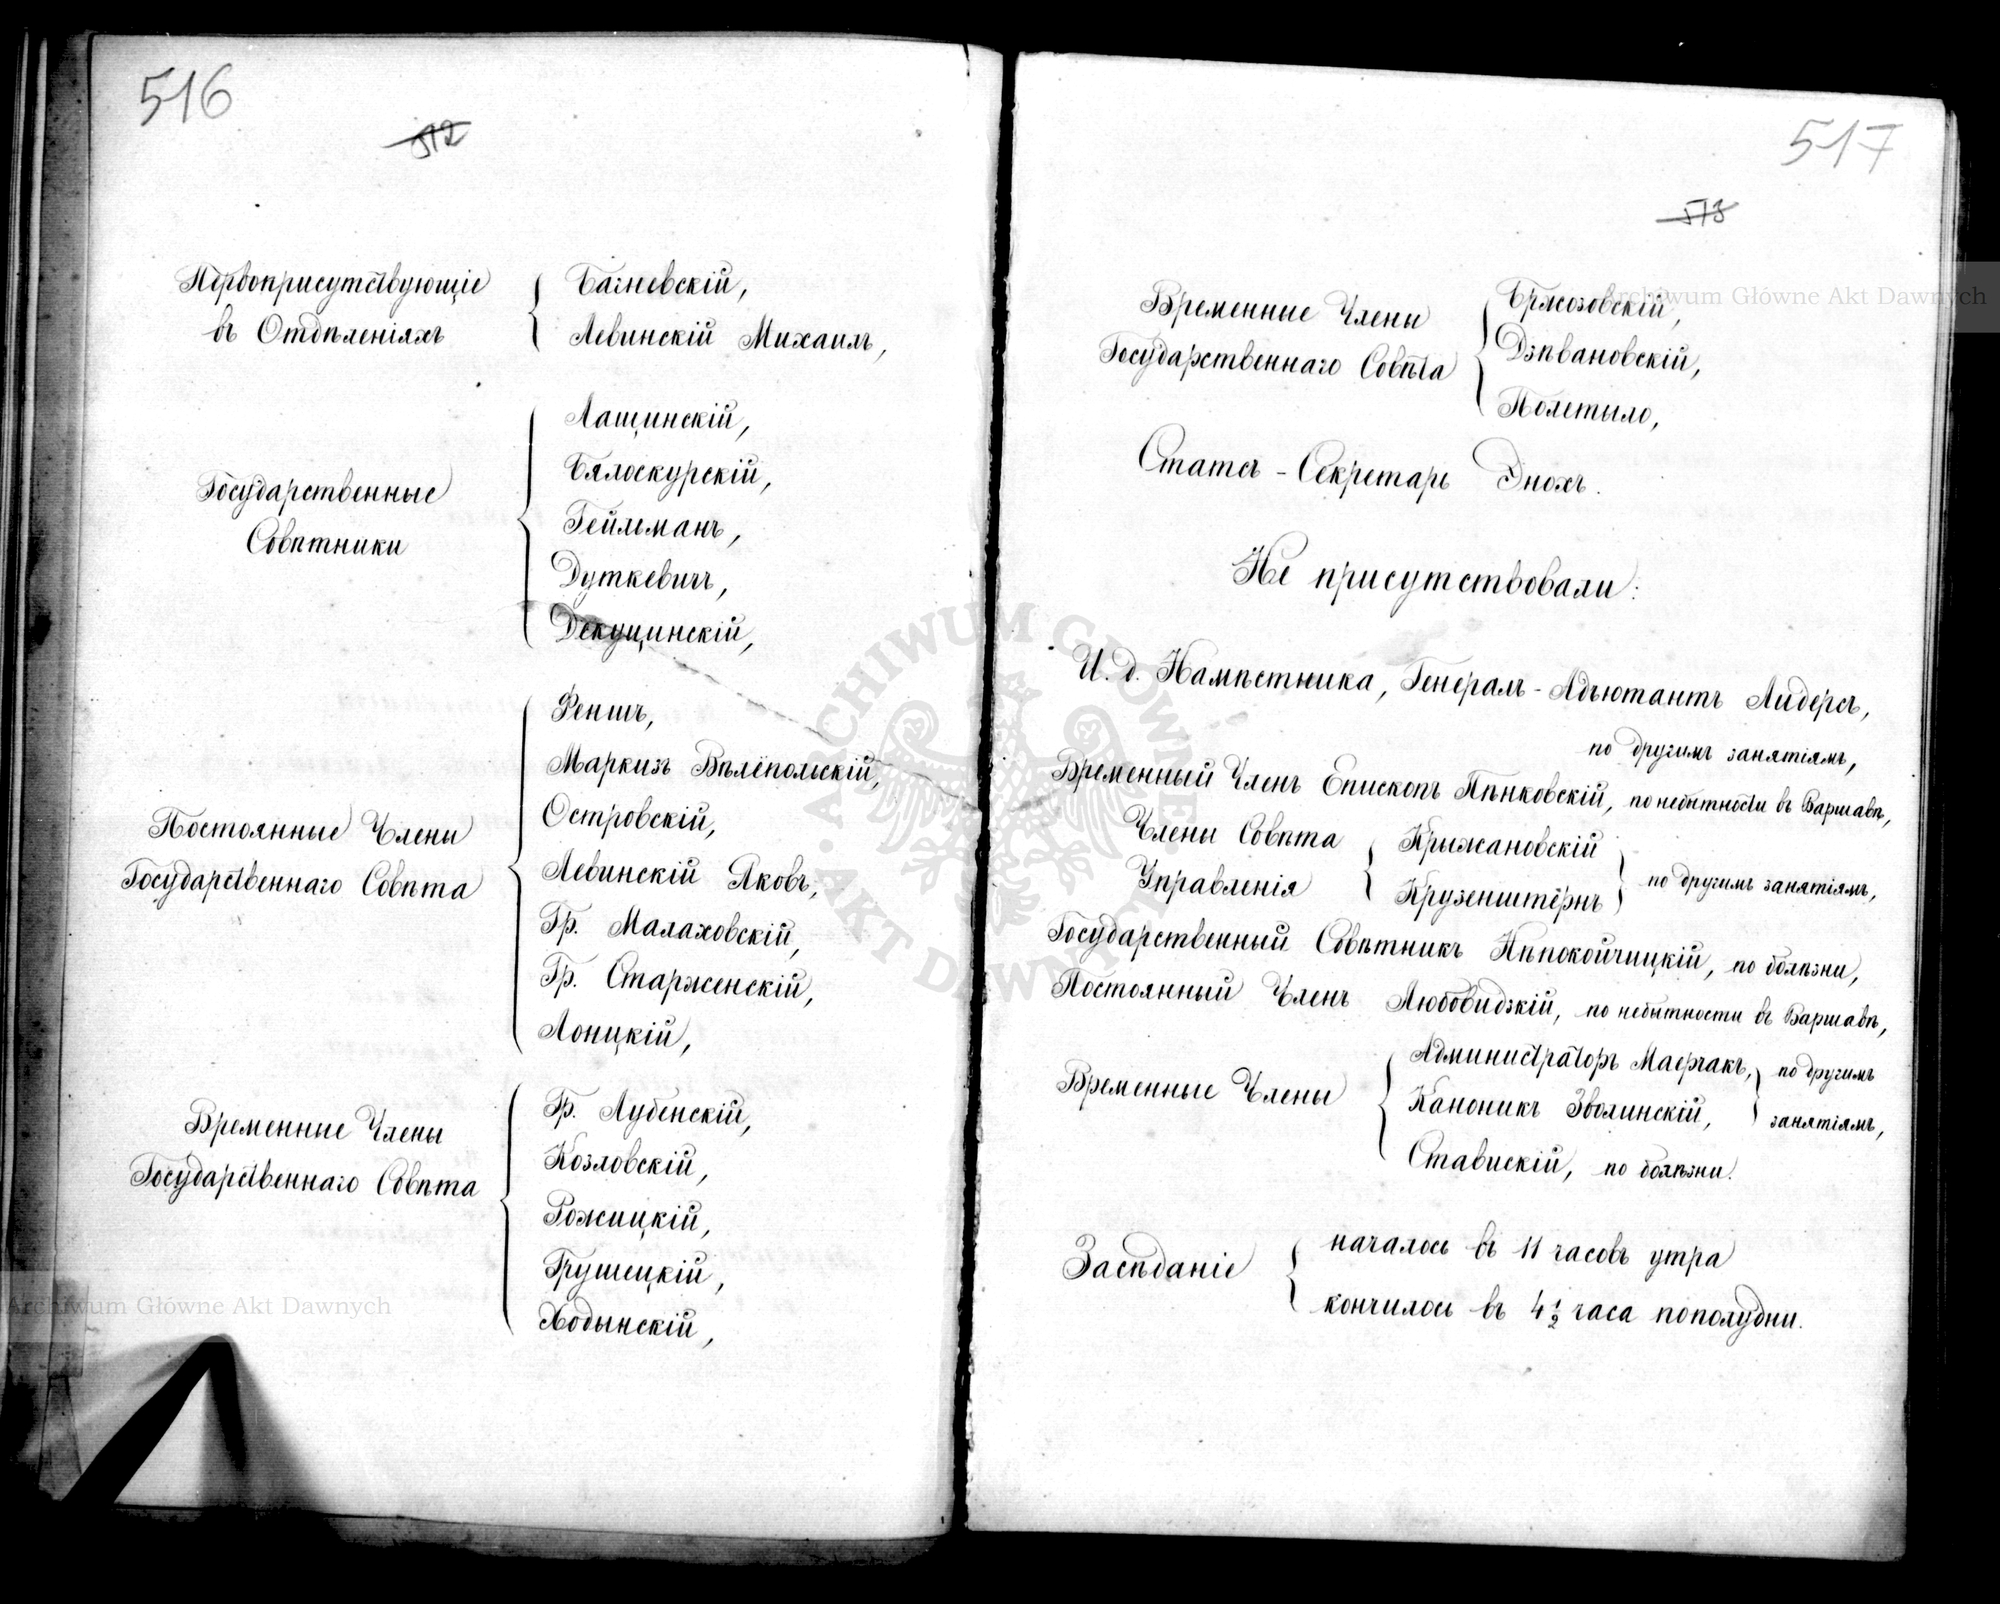 516
512
Первоприсутствующіе
въ Отдѣленіяхъ
Багневскій,
Левинскій Михаилъ,
Государственные
Совѣтники
Лащинскій,
Бялоскурскій,
Гейльманъ,
Дуткевичъ,
Декуцинскій,
Постоянные Члены
Государственнаго Совѣта
Феншъ,
Маркизъ Вѣлёпольскій,
Островскій,
Левинскій Яковъ,
Гр. Малаховскій,
Гр. Старженскій,
Лонцкій,
Временные Члены
Государственнаго Совѣта
Гр. Лубенскій,
Козловскій,
Рожицкій,
Грушецкій,
Ходынскій,
517
513
Временные Члены
Государственнаго Совѣта
Бржозовскій,
Дзѣвановскій,
Полетыло,
Статсъ-Секретарь Энохъ.
Не присутствовали:
И. д. Намѣстника, Генералъ-Адъютантъ Лидерсъ,
по другимъ занятіямъ,
Временный Членъ Епископъ Пѣнковскій, по небытности въ Варшавѣ,
Члены Совѣта
Управленія
Крыжановскій
Крузенштёрнъ
по другимъ занятіямъ,
Государственный Совѣтникъ Нѣпокойчицкій, по болѣзни,
Постоянный Членъ Любовидзкій, по небытности въ Варшавѣ,
Временные Члены
Администраторъ Маерчакъ,
Каноникъ Зволинскій,
по другимъ
занятіямъ,
Ставискій, по болѣзни.
Засѣданіе
началось въ 11 часовъ утра
кончилось въ 4 1/2 часа пополудни.
Archiwum Główne Akt Dawnych
Archiwum Główne Akt Dawnych
ARCHIWUM GŁÓWNE
AKT DAWNYCH